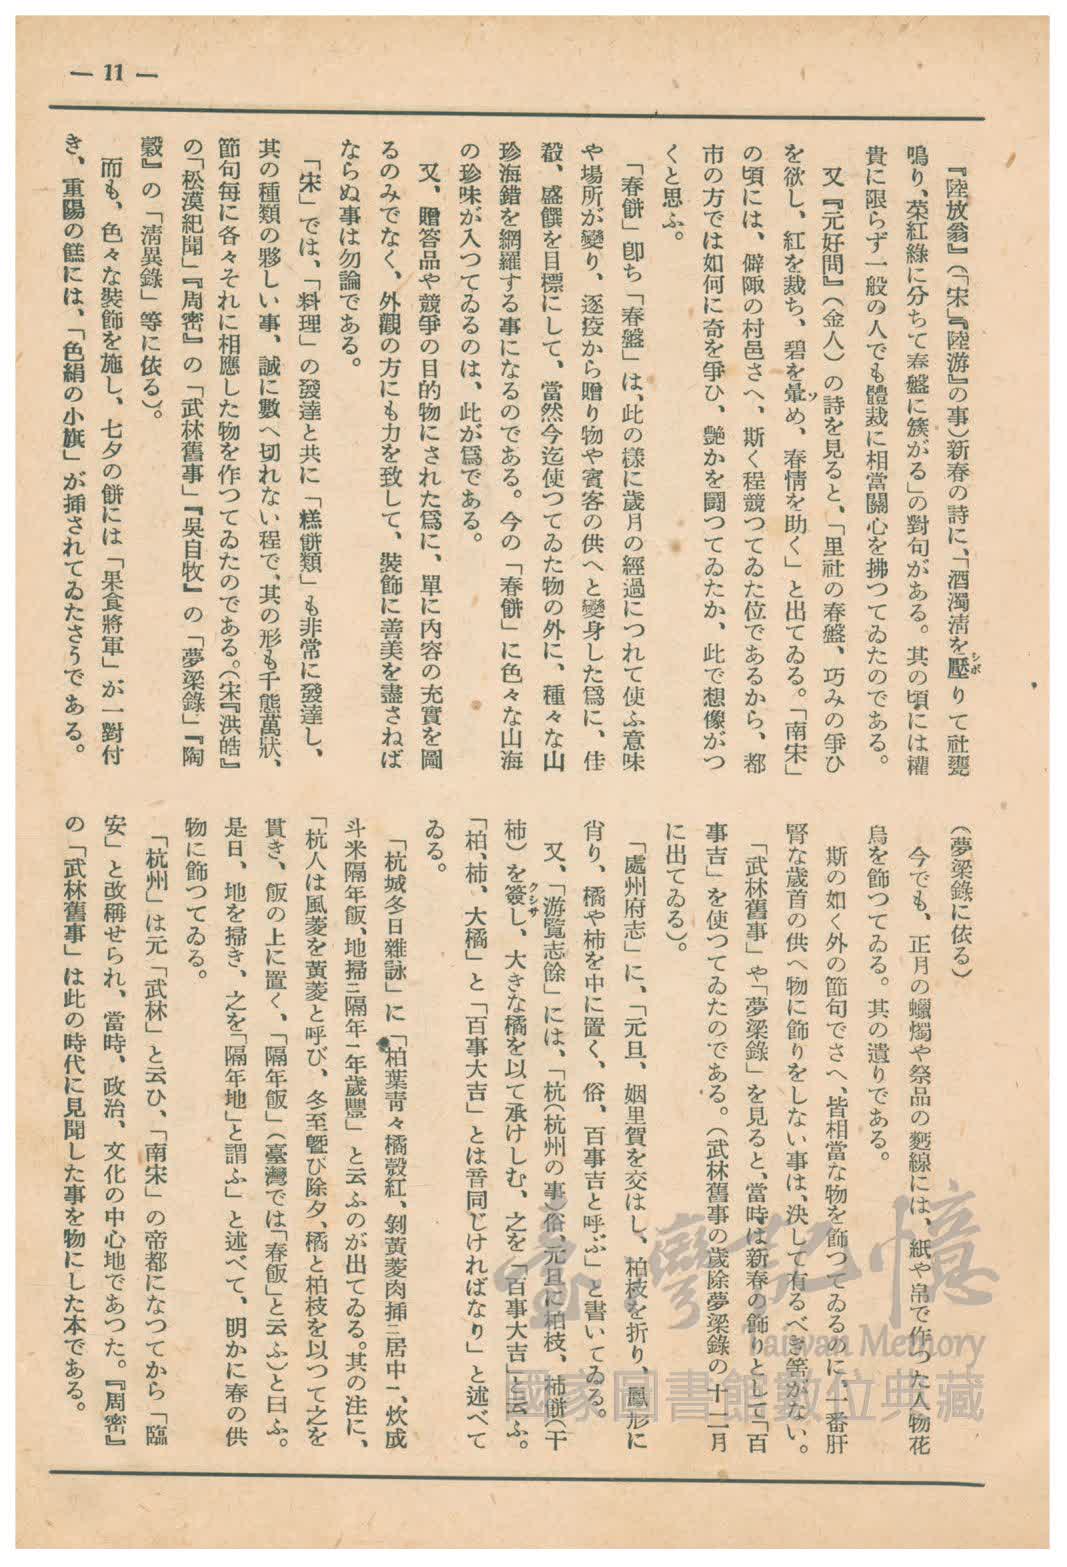 — 11 —
『陸放翁』(「宋」『陸游』の事)新春の詩に、「酒濁淸を壓りて社甕
シボ
鳴り、菜紅綠に分ちて春盤に簇がる」の對句がある。其の頃には權
貴に限らず一般の人でも體裁に相當關心を拂つてゐたのである。
又『元好問』(金人)の詩を見ると、「里社の春盤、巧みの爭ひ
を欲し、紅を裁ち、碧を暈め、春情を助く」と出てゐる。「南宋」
ソ
の頃には、僻陬の村邑さへ、斯く程競つてゐた位であるから、都
市の方では如何に奇を爭ひ、艶かを鬪つてゐたか、此で想像がつ
くと思ふ。
「春餅」卽ち「春盤」は、此の樣に歲月の經過につれて使ふ意味
や場所が變り、逐疫から贈り物や賓客の供へと變身した爲に、佳
殽、盛饌を目標にして、當然今迄使つてゐた物の外に、種々な山
珍海錯を網羅する事になるのである。今の「春餅」に色々な山海
の珍味が入つてゐるのは、此が爲である。
又、贈答品や競爭の目的物にされた爲に、單に內容の充實を圖
るのみでなく、外觀の方にも力を致して、裝飾に善美を盡さねば
ならぬ事は勿論である。
「宋」では、「料理」の發達と共に「糕餅類」も非常に發達し、
其の種類の夥しい事、誠に數へ切れない程で、其の形も千態萬狀、
節句每に各々それに相應した物を作つてゐたのである。(宋『洪皓』
の「松漠紀聞」『周密』の「武林舊事」『吳自牧』の「夢梁錄」『陶
穀』の「淸異錄」等に依る)。
而も、色々な裝飾を施し、七夕の餅には「果食將軍」が一對付
き、重陽の餻には、「色絹の小旗」が揷されてゐたさうである。
(夢梁錄に依る)
今でも、正月の蠟燭や祭品の麪線には、紙や帛で作つた人物花
鳥を飾つてゐる。其の遺りである。
斯の如く外の節句でさへ、皆相當な物を飾つてゐるのに、一番肝
腎な歲首の供へ物に飾りをしない事は、決して有るべき筈がない。
「武林舊事」や「夢梁錄」を見ると、當時は新春の飾りとして「百
事吉」を使つてゐたのである。(武林舊事の歲除夢梁錄の十二月
に出てゐる)。
「處州府志」に、「元旦、姻里賀を交はし、柏枝を折り、鳳形に
肖り、橘や柿を中に置く、俗、百事吉と呼ぶ」と書いてゐる。
又、「游覽志餘」には、「杭(杭州の事)俗、元旦に柏枝、柿餅(干
柿)を簽し、大きな橘を以て承けしむ、之を「百事大吉」と云ふ。
クシサ
「柏、柿、大橘」と「百事大吉」とは音同じければなり」と述べて
ゐる。
「杭城冬日雜詠」に「柏葉靑々橘殼紅、剝黃菱肉揷ニ居中一、炊成
斗米隔年飯、地掃ニ隔年一年歲豐」と云ふのが出てゐる。其の注に、
「杭人は風菱を黃菱と呼び、冬至曁び除夕、橘と柏枝を以つて之を
貫き、飯の上に置く、「隔年飯」(臺灣では「春飯」と云ふ)と曰ふ。
是日、地を掃き、之を「隔年地」と謂ふ」と述べて、明かに春の供
物に飾つてゐる。
「杭州」は元「武林」と云ひ、「南宋」の帝都になつてから「臨
安」と改稱せられ、當時、政治、文化の中心地であつた。『周密』
の「武林舊事」は此の時代に見聞した事を物にした本である。
臺灣記憶
Taiwan Memory
國家圖書館數位典藏